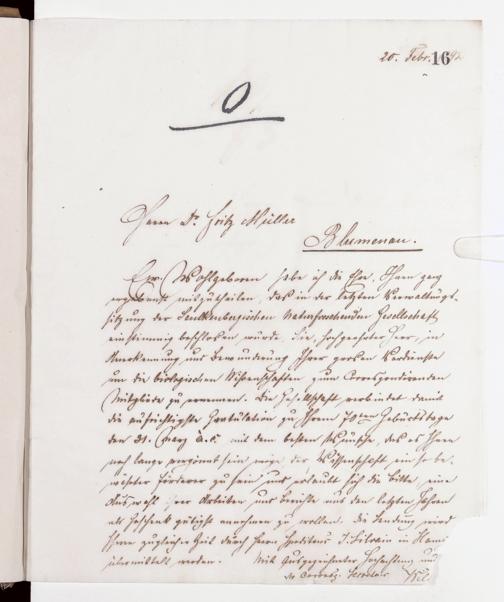 20. Febr. 92
16
0
Herrn Dr. Fritz Müller
Blumenau.
Ew. Wohlgeboren habe ich die Ehre, Ihnen ganz
ergebenst mitzutheilen, daß in der letzten Verwaltungs-
sitzung der Senckenbergischen Naturforschenden Gesellschaft
einstimmig beschlossen wurde, Sie, hochgeehrter Herr, in
Anerkennung und Bewunderung Ihrer großen Verdienste
um die biologischen Wissenschaften zum Correspondirenden
Mitgliede zu ernennen. Die Gesellschaft verbindet damit
die aufrichtigste Gratulation zu Ihrem 70ten Geburtstage
den 31. März a.c. mit dem besten Wunsche, daß es Ihnen
noch lange vergönnt sein möge, der Wissenschaft ein so be-
währter Förderer zu sein und erlaubt sich die Bitte, eine
Auswahl Arbeiten und Berichte aus den letzten Jahren
als Geschenk gütigst annehmen zu wollen. Die Sendung wird
Ihnen zu gleicher Zeit durch Herrn Spediteur in
übermittelt werden. Mit ausgezeichneter Hochachtung und
Secretär